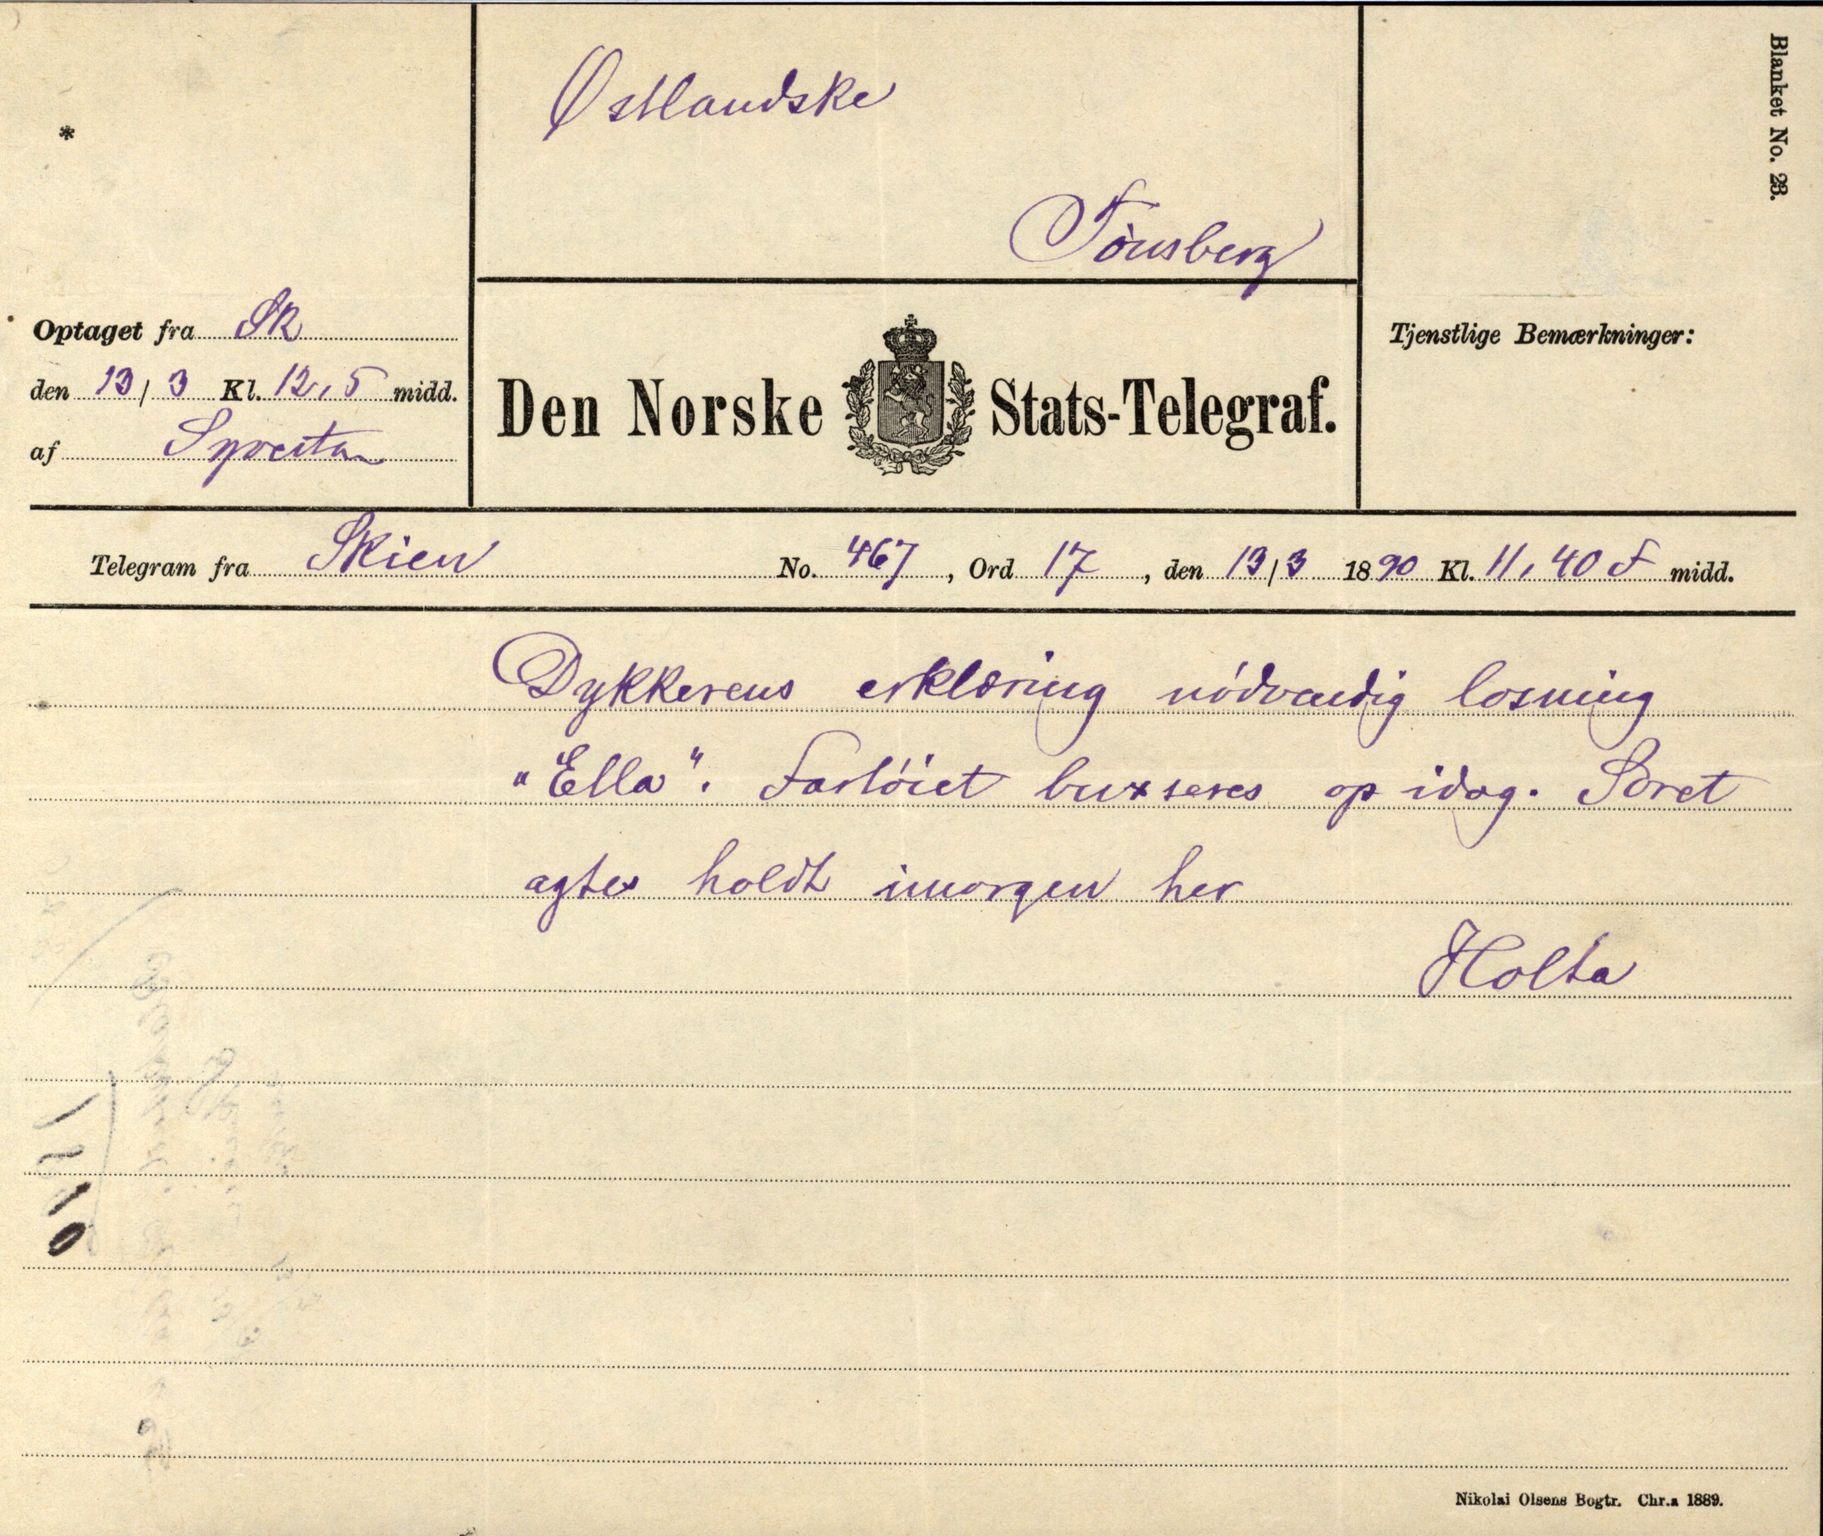 Blanket No. 23.
*
Østlandske
Tönsberg
Optaget fra Sk
den 13/3 Kl. 12,5 midd.
af
Den Norske Stats-Telegraf.
Tjenstlige Bemærkninger:
Telegram fra Skien No. 467, Ord 17, den 13/3 1890 Kl. 11,40 F midd.
Dykkerens erklæring nödvendig losning
"Ella". Fartöiet buxseres op idag. Söret
agtes holdt imorgen her
Holta
Nikolai Olsens Bogtr. Chr.a 1889.